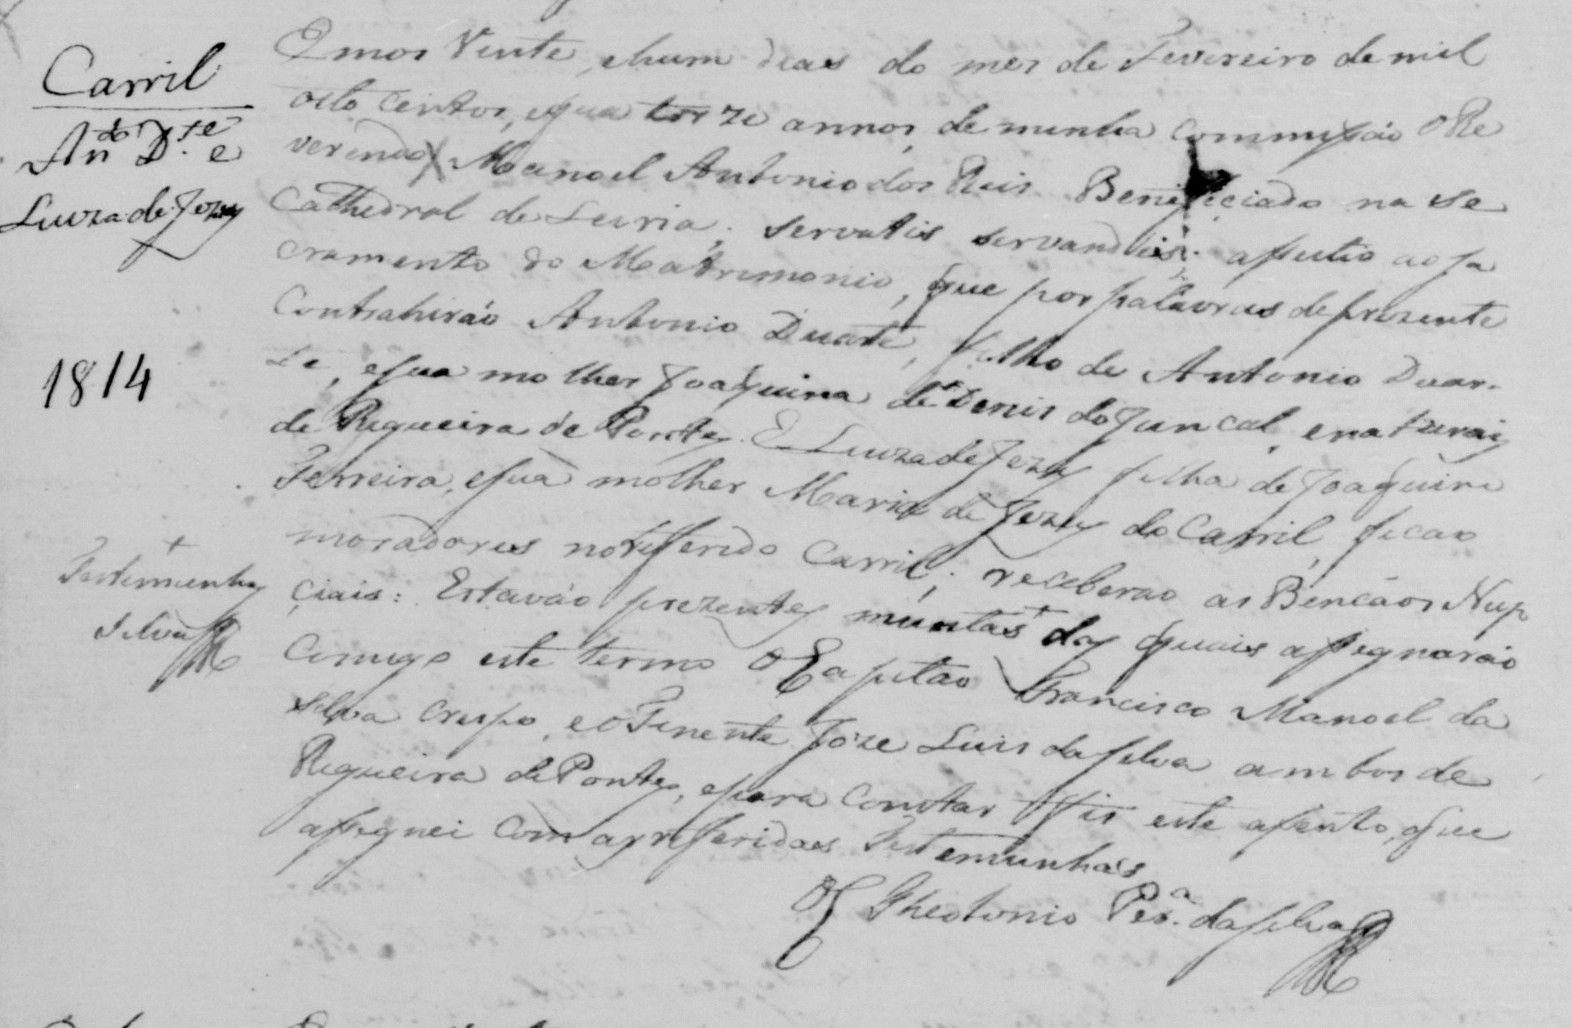 Carril
Anto D.te e
Luiza de Jezus
1814
Testemunhas
Silva
Em os Vinte, e hum dias do mes de Fevereiro de mil
oito centos, e quatorze annos, de minha Commissão o Re
verendo Manoel Antonio dos Reis Beneficiado na Se
Cathedral de Leiria, servatis servandis; assistio ao Sa
cramento do Matrimonio, que por palavras de prezente
Contrahirão Antonio Duarte, filho de Antonio Duar-
te, e sua molher Joaquina de Deniz do Juncal, e naturais
de Regueira de Pontes. E Luiza de Jezus filha de Joaquim
Ferreira, e sua molher Maria de Jezus do Carril, ficão
moradores no referido Carril; receberão as Bencãos Nup
ciais: Estavão prezentes muntas + das quais assignarão
Comigo este termo o Capitão Francisco Manoel da
Silva Crespo, e o Tenente Joze Luis da Silva ambos de
Regueira de Pontes, e para Constar fis este asento, que
assignei Com as referidas Testemunhas
O C Theotonio Per.a da Silva